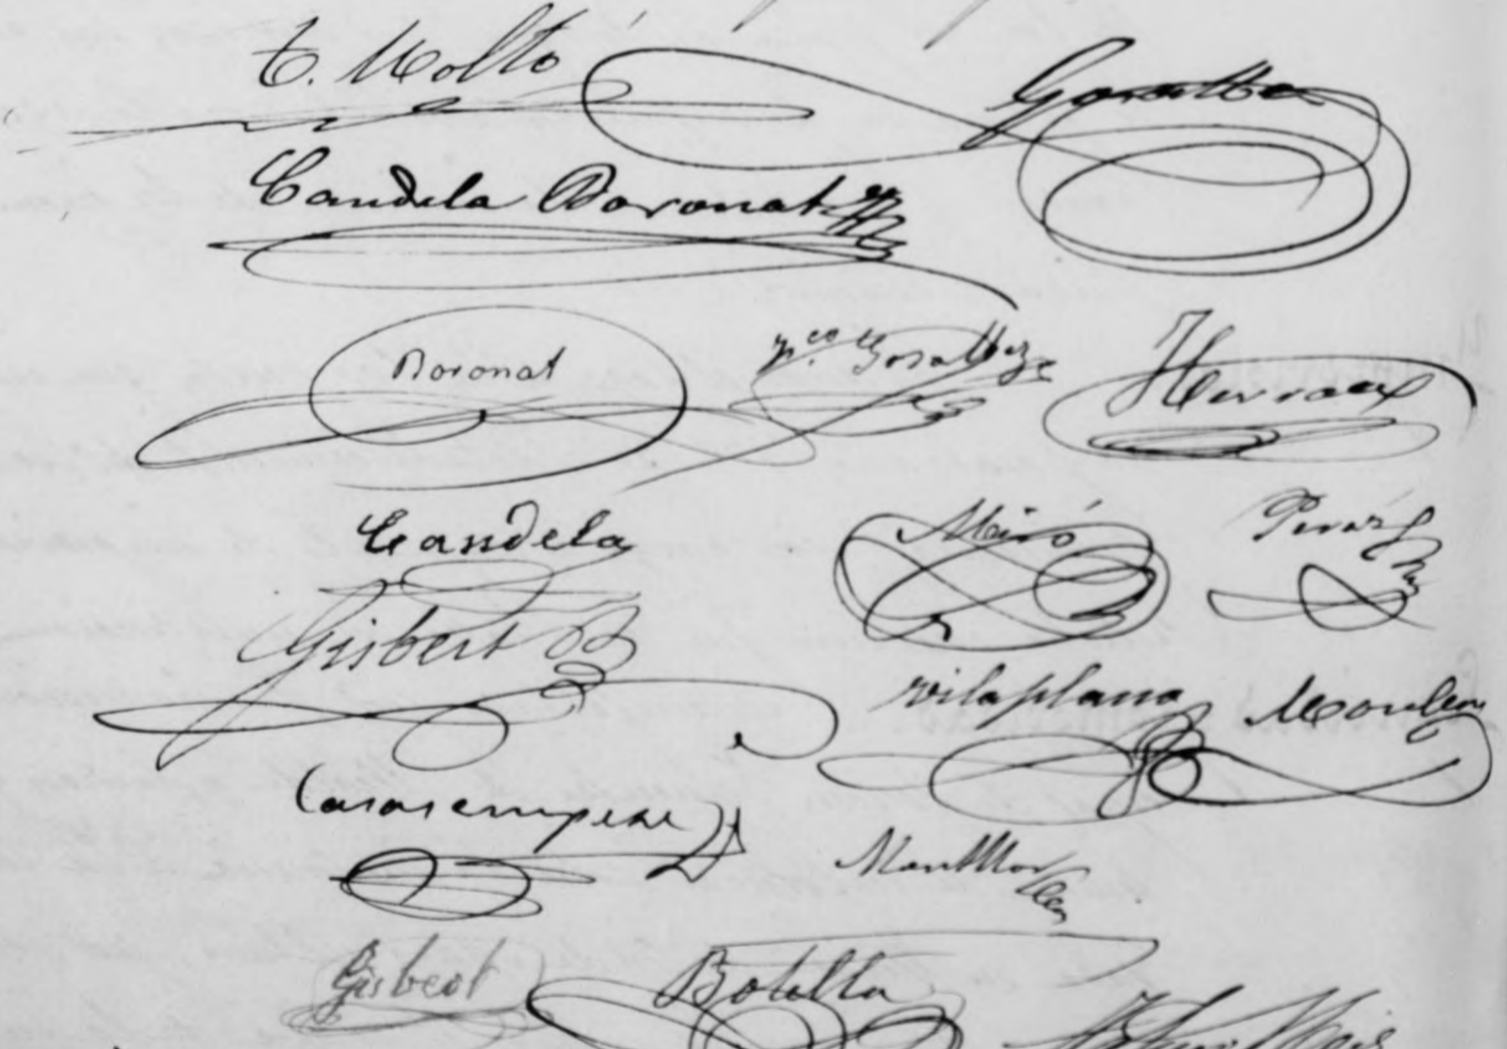 E. Moltó Gosalbez
Candela Boronat
Boronat Fco Gosalbez Herraez
Candela Miró Peréz
Gisbert
Vilaplana Monllor
Casasempere
Monllor
Gisbert Botella